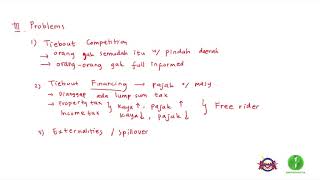 III. Problems
1) Tiebout Competition
→ orang gak semudah itu w/ pindah daerah
→ orang-orang gak full informed
2) Tiebout Financing → pajak w/ masy
→ Dianggap ada lump sum tax
→ Property tax } Kaya ↑, pajak ↑ } Free rider
Income tax } Kaya ↓, pajak ↓
3) Externalities / Spillover